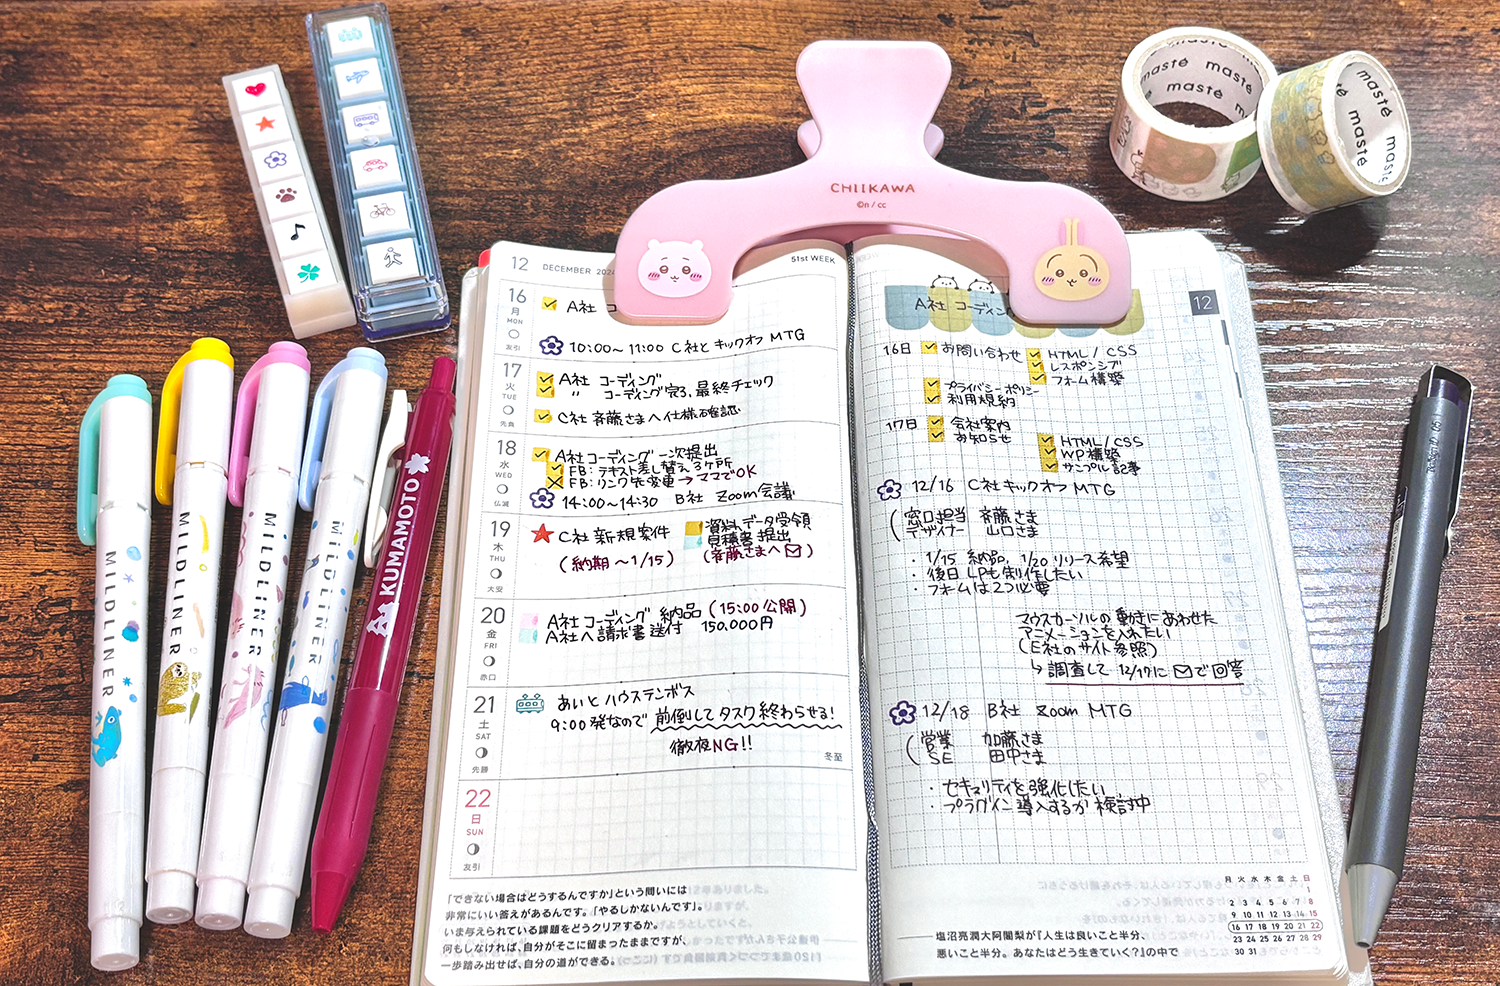 CHIIKAWA
©n / cc
masté masté
masté
masté
masté
MILDLINER
MILDLINER
MILDLINER
MILDLINER
KUMAMOTO
12 DECEMBER 2024
51st WEEK
16 月 MON 友引
A社 コ
10:00〜11:00 C社とキックオフ MTG
17 火 TUE 先負
A社 コーディング
〃 コーディング完了、最終チェック
C社 斉藤さまへ仕様確認
18 水 WED 仏滅
A社コーディング一次提出
FB: テキスト差し替え 3ヶ所
FB: リンク先変更→ママでOK
14:00〜14:30 B社 Zoom会議
19 木 THU 大安
C社 新規案件
(納期〜1/15)
資料、データ受領
見積書提出
(斉藤さまへ)
20 金 FRI 赤口
A社コーディング 納品 (15:00公開)
A社へ請求書送付 150,000円
21 土 SAT 先勝
あいと ハウステンボス
9:00発なので 前倒してタスク終わらせる!
徹夜NG!!
冬至
22 日 SUN 友引
「できない場合はどうするんですか」という問いには
非常にいい答えがあるんです。「やるしかないんです」。
いま与えられている課題をどうクリアするか。
何もしなければ、自分がそこに留まったままですが、
一歩踏み出せば、自分の道ができる。
12
A社 コーディン
16日 お問い合わせ
HTML / CSS
レスポンシブ
フォーム構築
プライバシーポリシー
利用規約
17日 会社案内
お知らせ
HTML/CSS
WP構築
サンプル記事
12/16 C社キックオフMTG
窓口担当 斉藤さま
デザイナー 山口さま
・1/15 納品、1/20 リリース希望
・後日LPも制作したい
・フォームは2つ必要
マウスカーソルの動きにあわせた
アニメーションを入れたい
(E社のサイト参照)
↳調査して 12/17に で回答
12/18 B社 Zoom MTG
営業 加藤さま
SE 田中さま
・セキュリティを強化したい
・プラグイン導入するか検討中
塩沼亮潤大阿闍梨が『人生は良いこと半分、
悪いこと半分。あなたはどう生きていく?』の中で
月 火 水 木 金 土 日
1
2 3 4 5 6 7 8
9 10 11 12 13 14 15
16 17 18 19 20 21 22
23 24 25 26 27 28 29
30 31